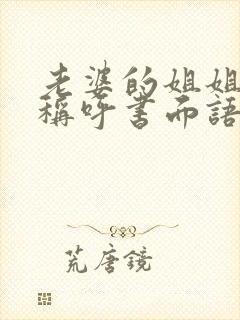 老婆的姐姐
稱呼書面語
荒唐鏡